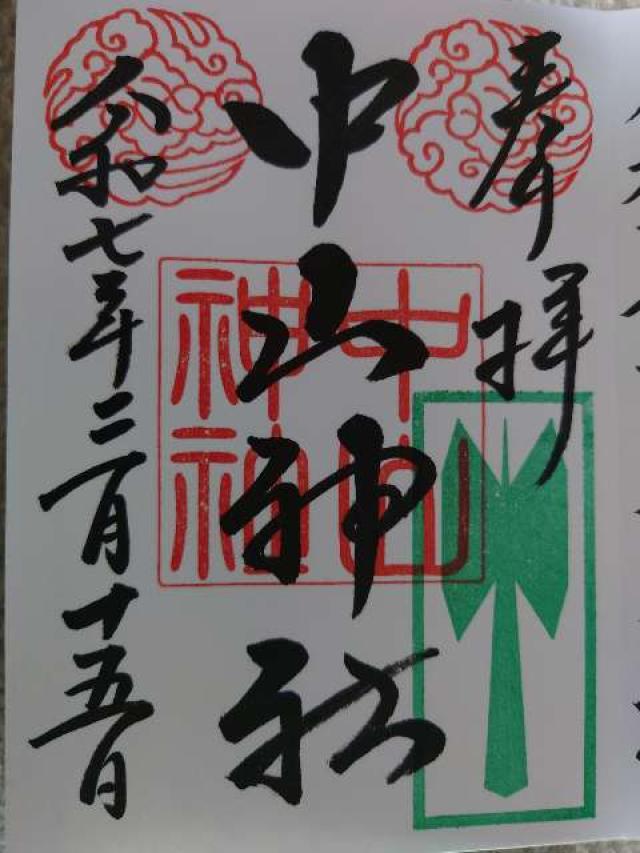 奉拝
中山神社
中山
神社
令和七年二月十五日